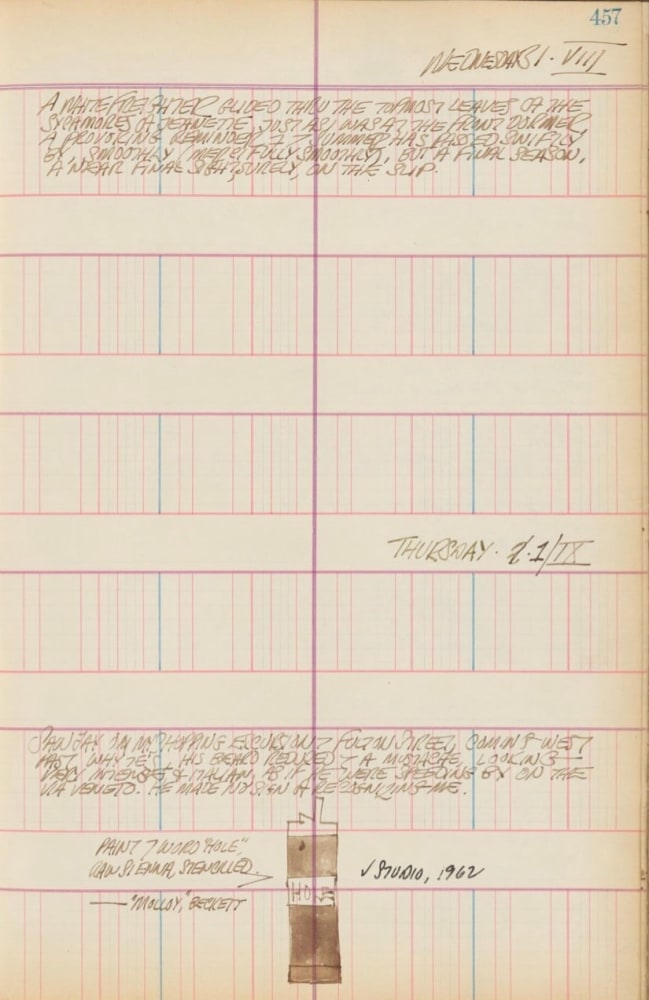 457
WEDNESDAY 1 · VIII
A WHITE FREIGHTER GLIDED THRU THE TOPMOST LEAVES OF THE
SYCAMORES OF JEANETTE, JUST AS I WAS AT THE FRONT DORMER
A PROVOKING REMINDER THAT SUMMER HAS PASSED SWIFTLY
BY, SMOOTHLY (MERCIFULLY SMOOTHLY), BUT A FINAL SEASON,
A NEAR FINAL SIGHT, SURELY, ON THE SLIP.
THURSDAY · 2 · 1/IX
SAW JAY ON MY SHOPPING EXCURSION FULTON STREET, COMING WEST
PAST WHYTE'S, HIS BEARD REDUCED A MUSTACHE, LOOKING
VERY INTENSE & ITALIAN, AS IF HE WERE SPEEDING BY ON THE
VIA VENETO. HE MADE NO SIGN RECOGNIZING ME.
PAINT WORD "HOLE"
RAW SIENNA, STENCILLED.
— "MOLLOY," BECKETT
HO
√ STUDIO, 1962